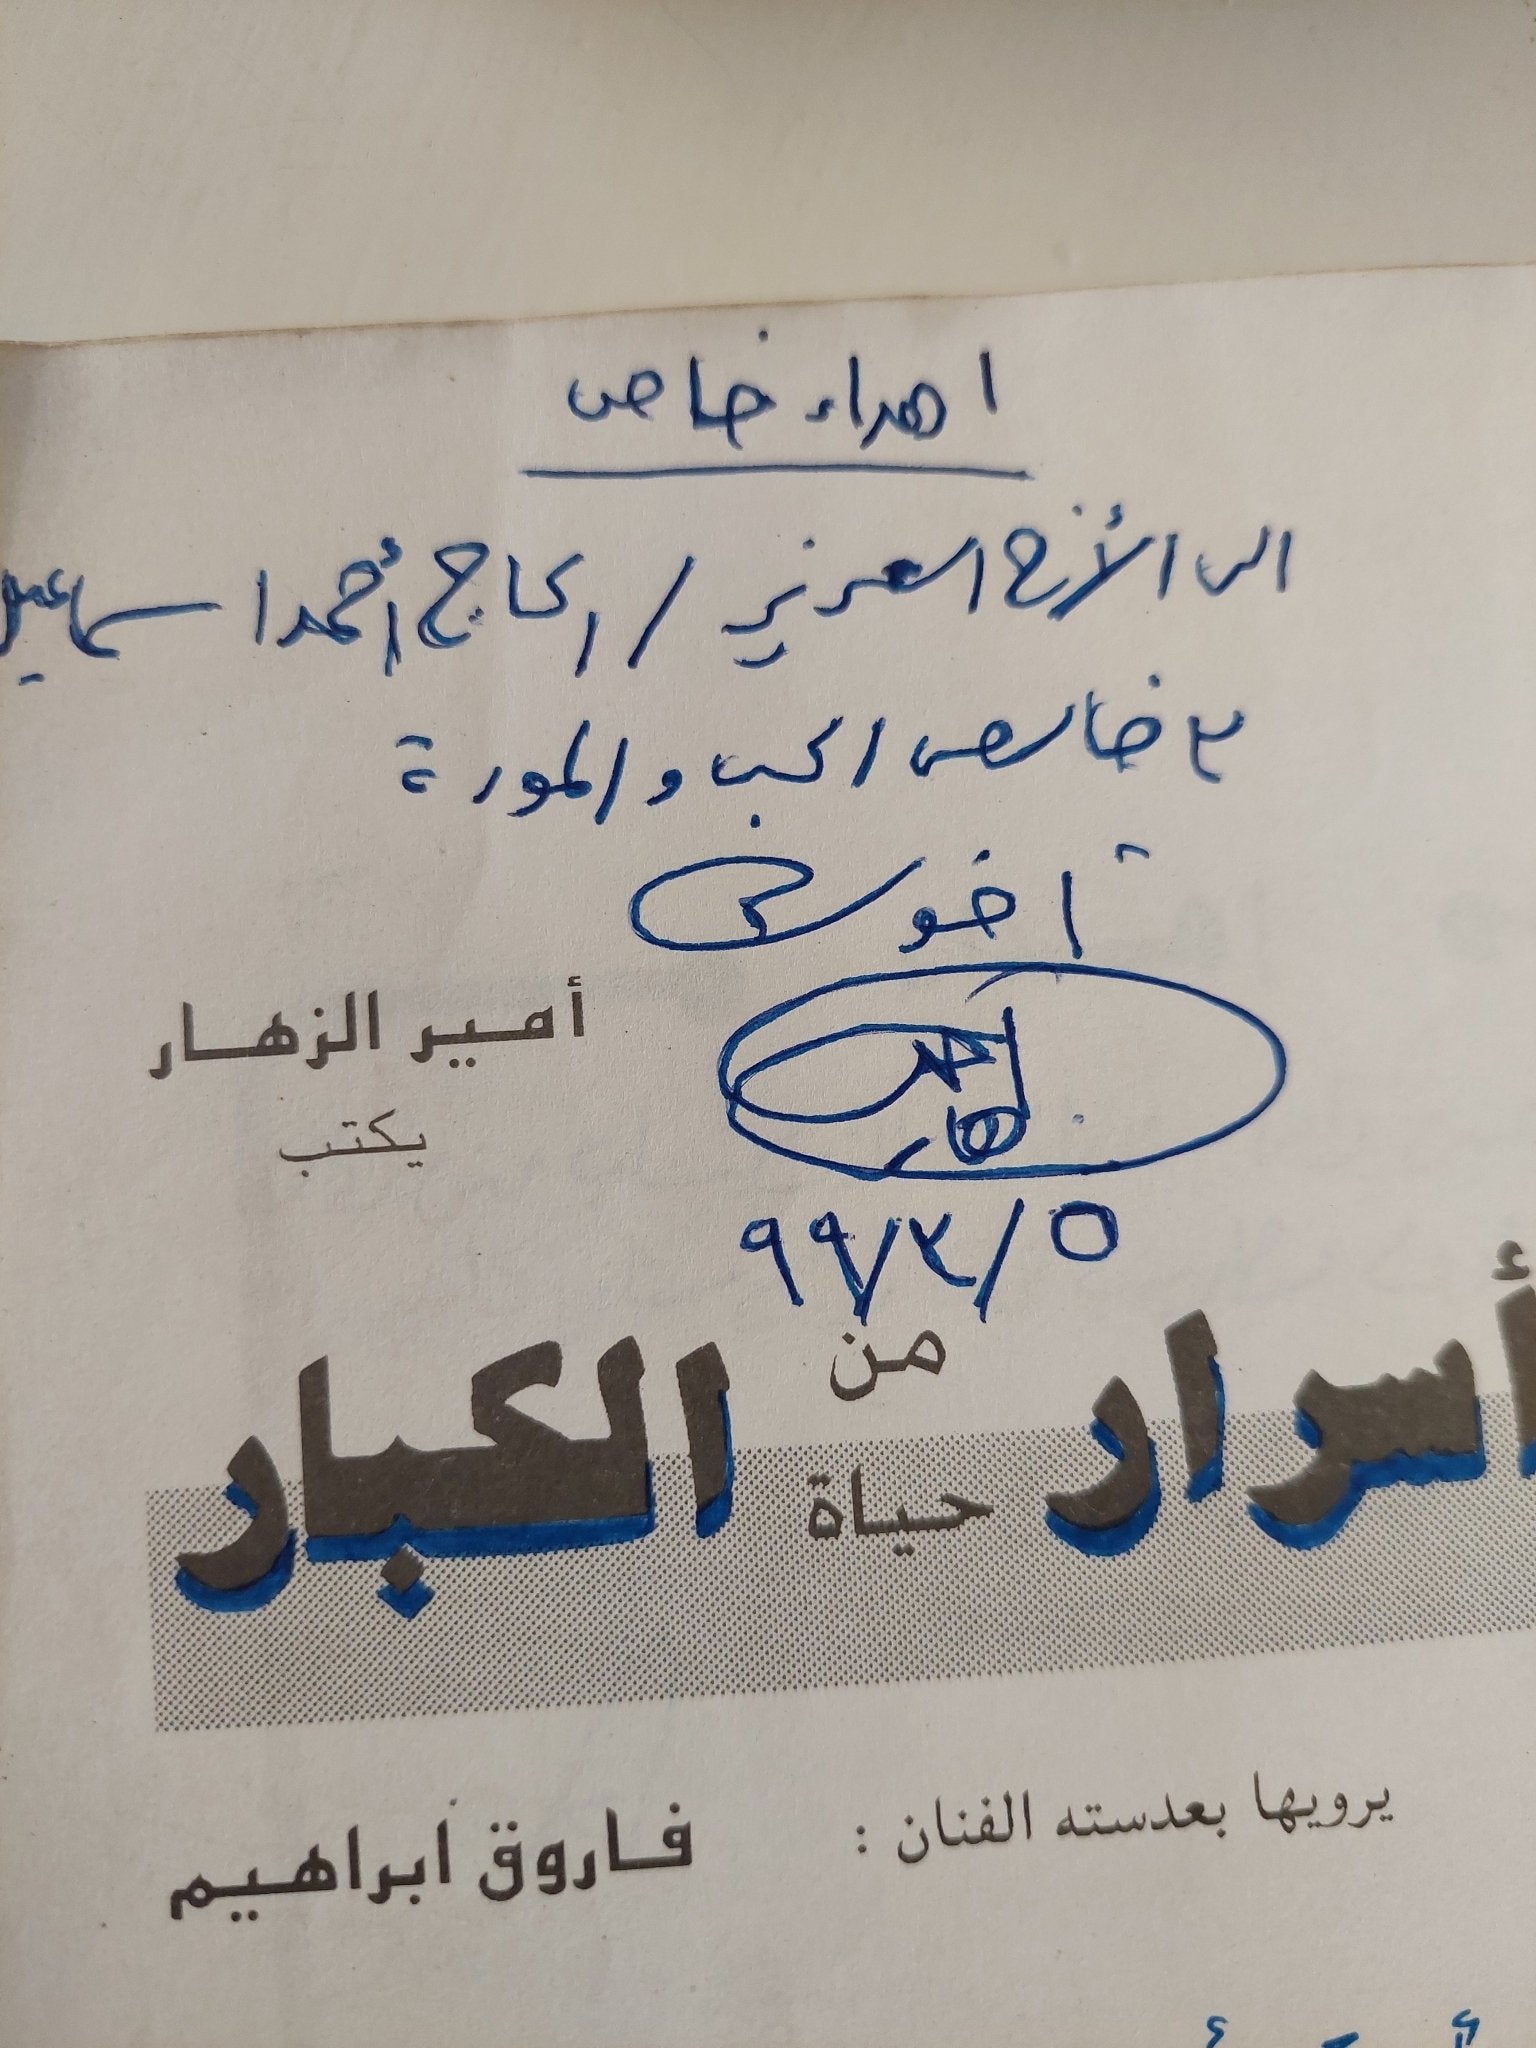 اهداء خاص
الى الأخ العزيز / الحاج أحمد اسماعيل
مع خالص الحب والمودة
أخوك
أمير الزهار
يكتب
٥/٣/٩٩
أسرار من حياة الكبار
يرويها بعدسته الفنان :
فاروق ابراهيم